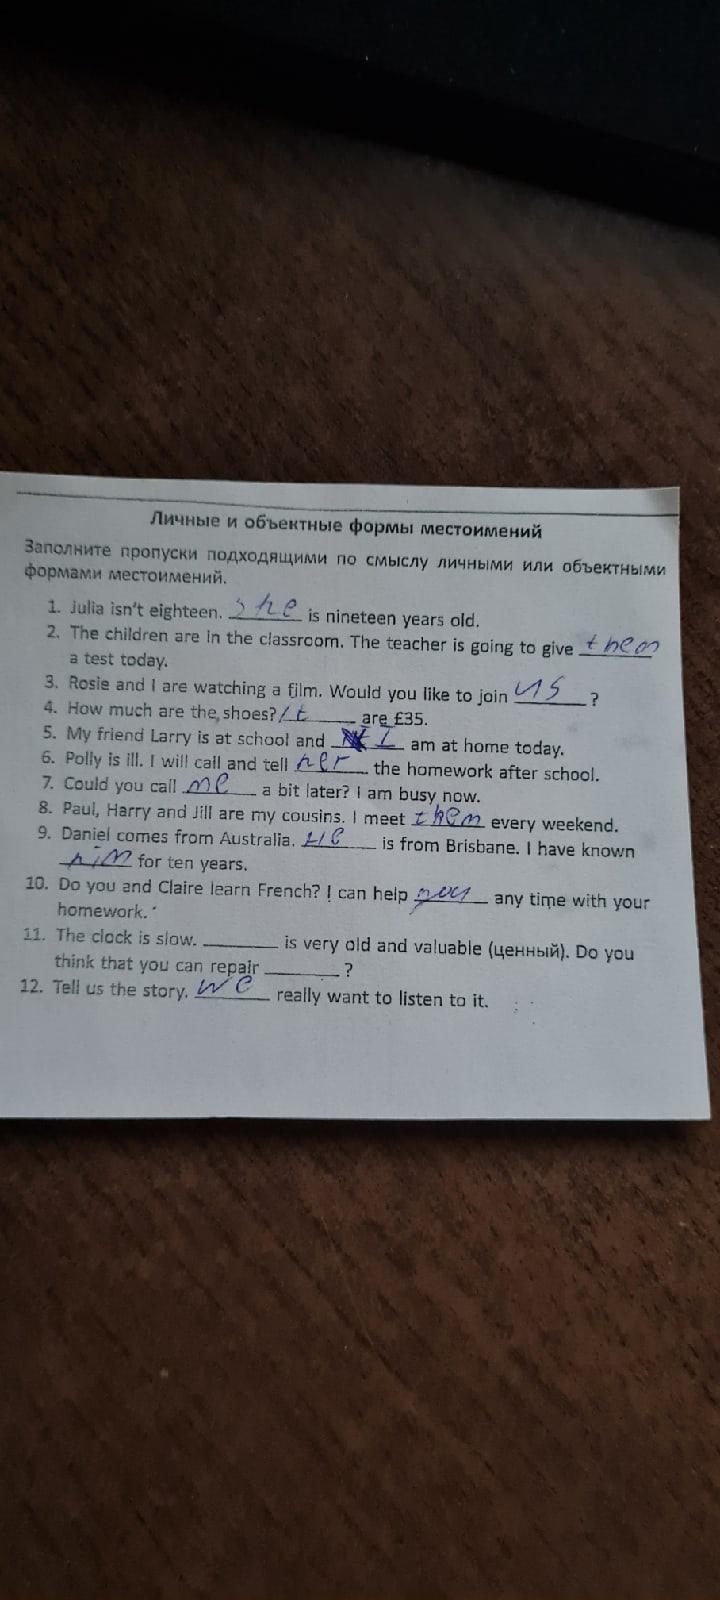 Личные и объектные формы местоимений
Заполните пропуски подходящими по смыслу личными или объектными
формами местоимений.
1. Julia isn't eighteen. she is nineteen years old.
2. The children are in the classroom. The teacher is going to give them
a test today.
3. Rosie and I are watching a film. Would you like to join us ?
4. How much are the shoes? It are £35.
5. My friend Larry is at school and I am at home today.
6. Polly is ill. I will call and tell her the homework after school.
7. Could you call me a bit later? I am busy now.
8. Paul, Harry and Jill are my cousins. I meet them every weekend.
9. Daniel comes from Australia. He is from Brisbane. I have known
him for ten years.
10. Do you and Claire learn French? I can help you any time with your
homework.
11. The clock is slow. ________ is very old and valuable (ценный). Do you
think that you can repair ________ ?
12. Tell us the story. we really want to listen to it.